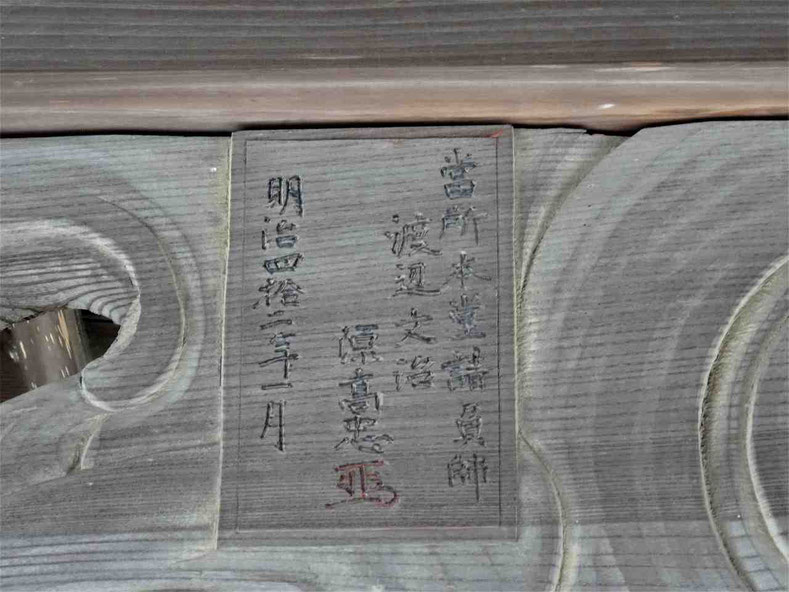 當所本堂請負師
渡邊文治
原高忠
明治四拾二年十一月